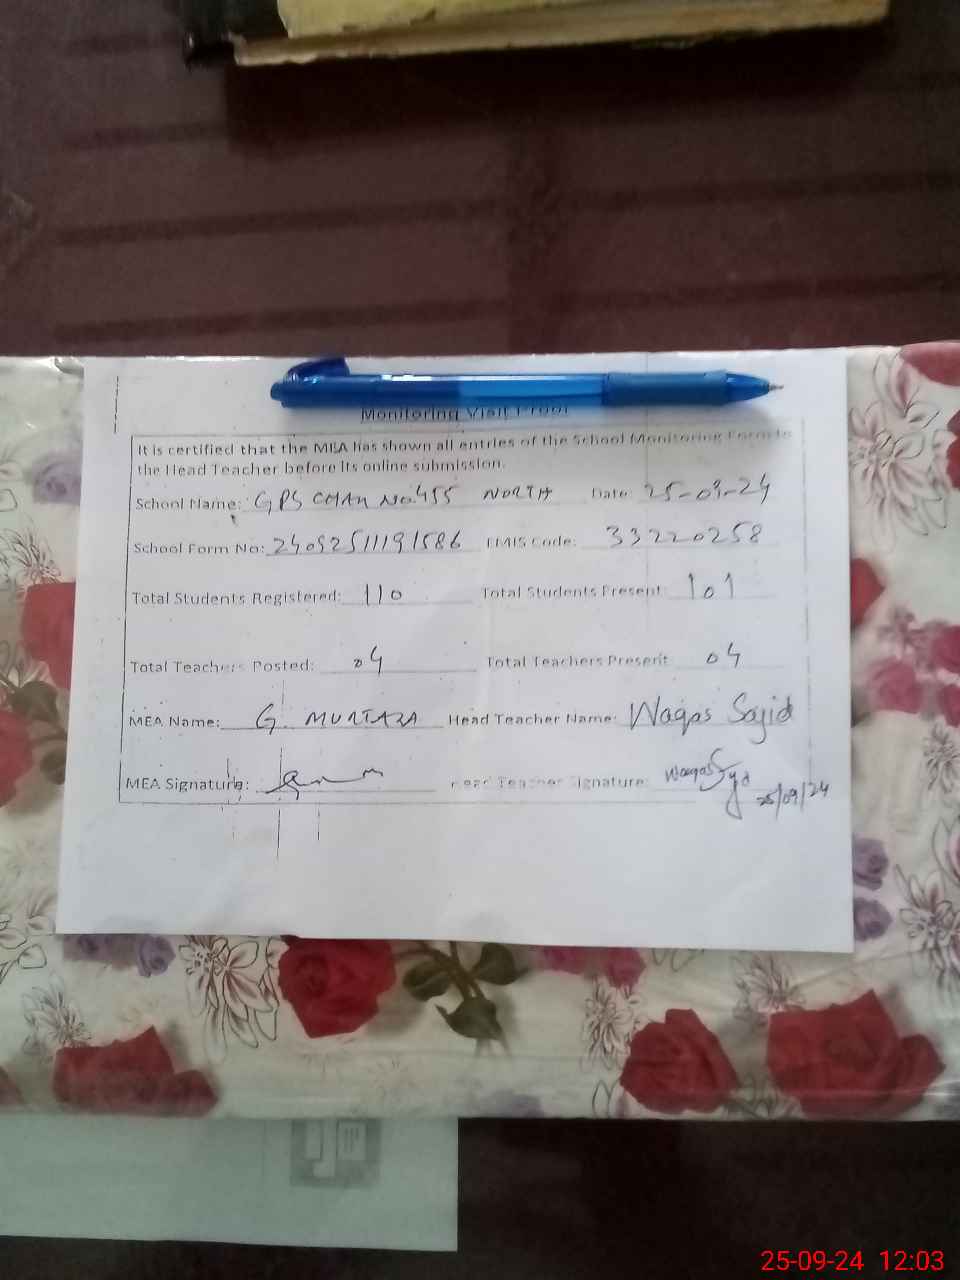 Monitoring Visit Proof
It is certified that the MEA has shown all entries of the School Monitoring Form to
the Head Teacher before its online submission.
School Name: GPS CHAK No.455 NORTH Date: 25-09-24
School Form No: 24092511191586 EMIS Code: 33220258
Total Students Registered: 110 Total Students Present: 101
Total Teachers Posted: 04 Total Teachers Present: 04
MEA Name: G. MURTAZA Head Teacher Name: Waqas Sajid
MEA Signature: Head Teacher Signature: Waqas
25/09/24
25-09-24 12:03